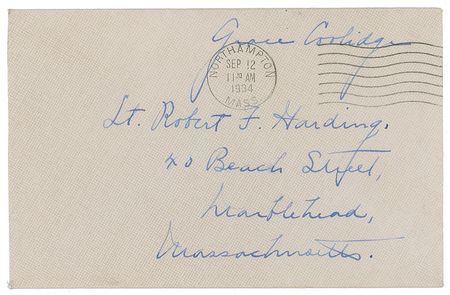 Grace Coolidge
NORTHAMPTON
SEP 12
11 30 AM
1934
MASS.
Lt. Robert F. Harding,
40 Beach Street,
Marblehead,
Massachusetts.